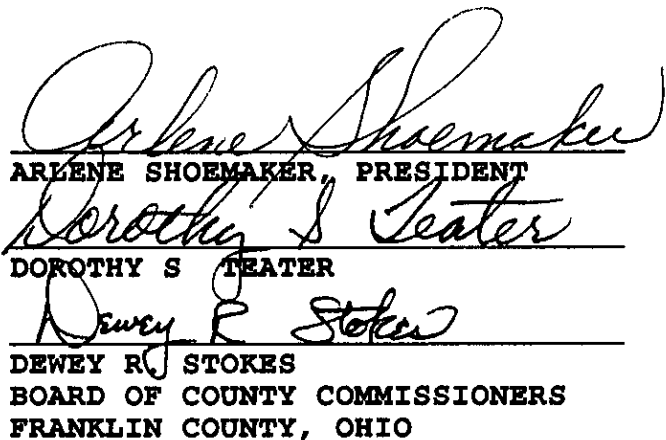 Arlene Shoemaker
ARLENE SHOEMAKER, PRESIDENT
Dorothy S Teater
DOROTHY S TEATER
Dewey R Stokes
DEWEY R. STOKES
BOARD OF COUNTY COMMISSIONERS
FRANKLIN COUNTY, OHIO